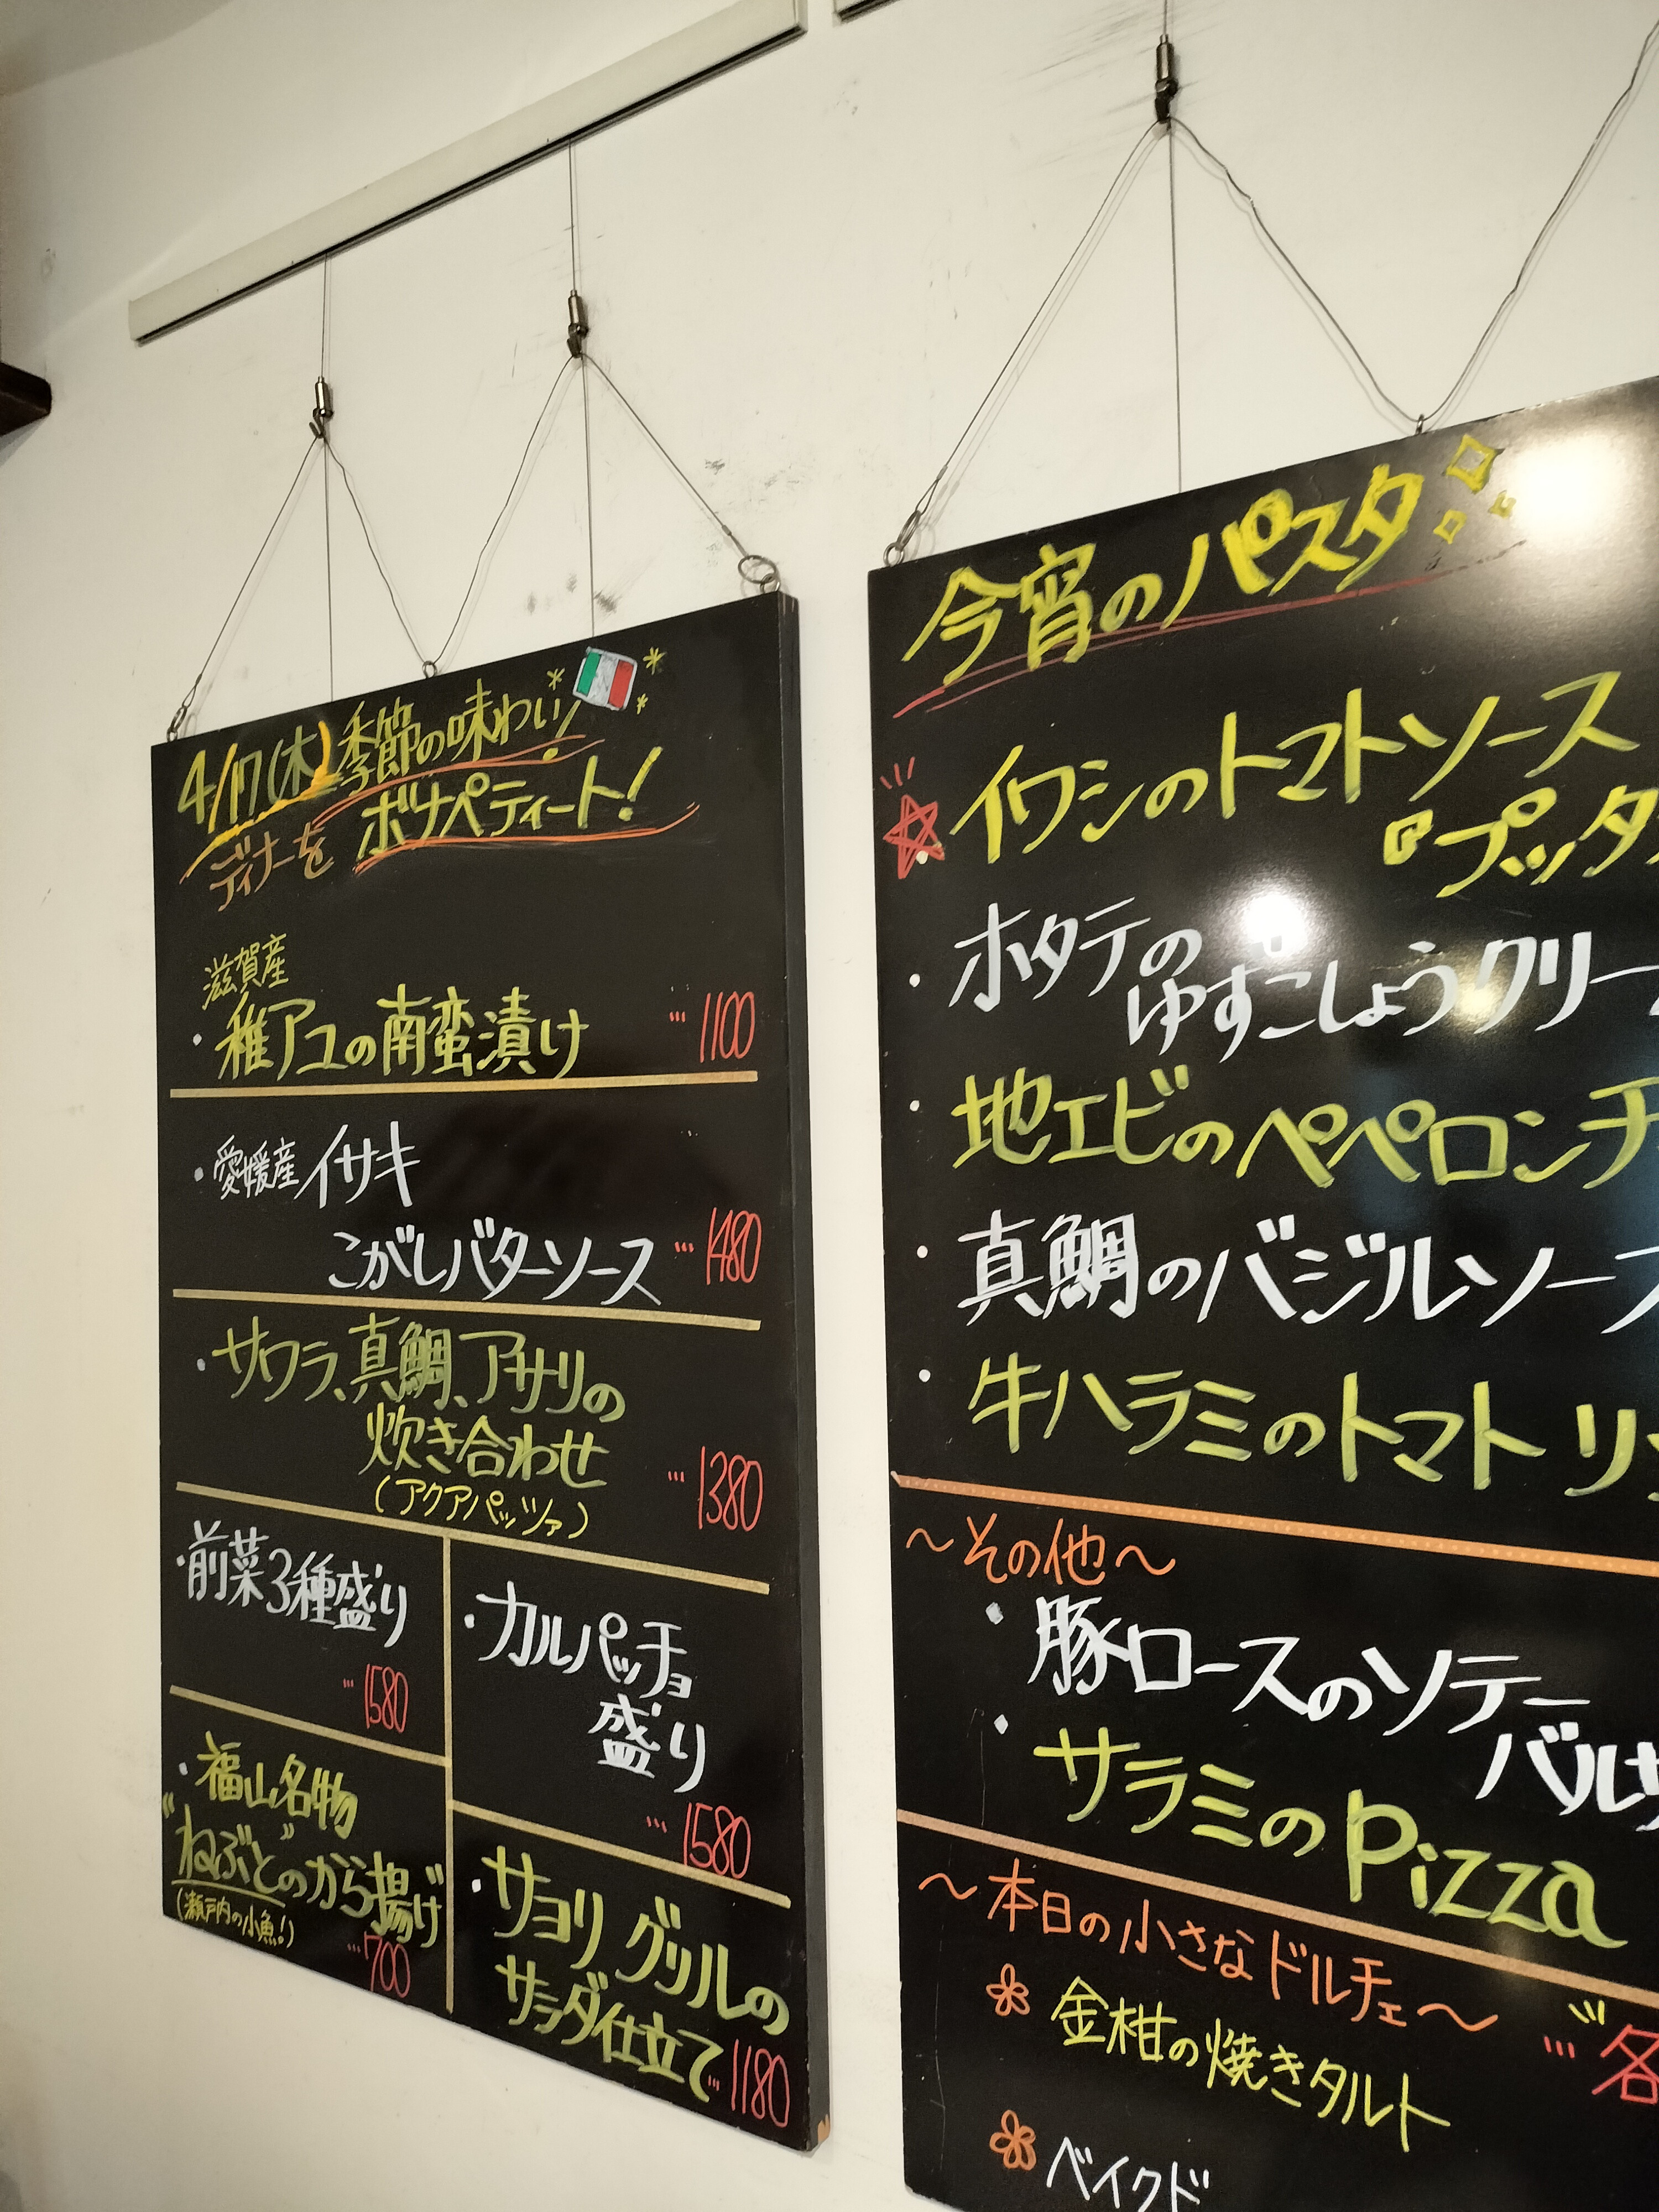 4/17(木)季節の味わい
ディナーを ボナペティート!
滋賀産
・稚アユの南蛮漬け …1100
・愛媛産イサキ
こがしバターソース …1480
・サワラ、真鯛、アサリの
炊き合わせ
(アクアパッツァ) …1380
・前菜3種盛り
…1580
・カルパッチョ
盛り
…1580
・福山名物
"ねぶと"のから揚げ
(瀬戸内の小魚!)
…700
・サヨリ グリルの
サラダ仕立て …1180
今宵のパスタ
イワシのトマトソース
『プッタ
・ホタテの
ゆずこしょうクリー
・地エビのペペロンチ
・真鯛のバジルソー
・牛ハラミのトマト リ
〜その他〜
・豚ロースのソテー
バルサ
・サラミのPizza
〜本日の小さなドルチェ〜
金柑の焼きタルト …各
ベイクド